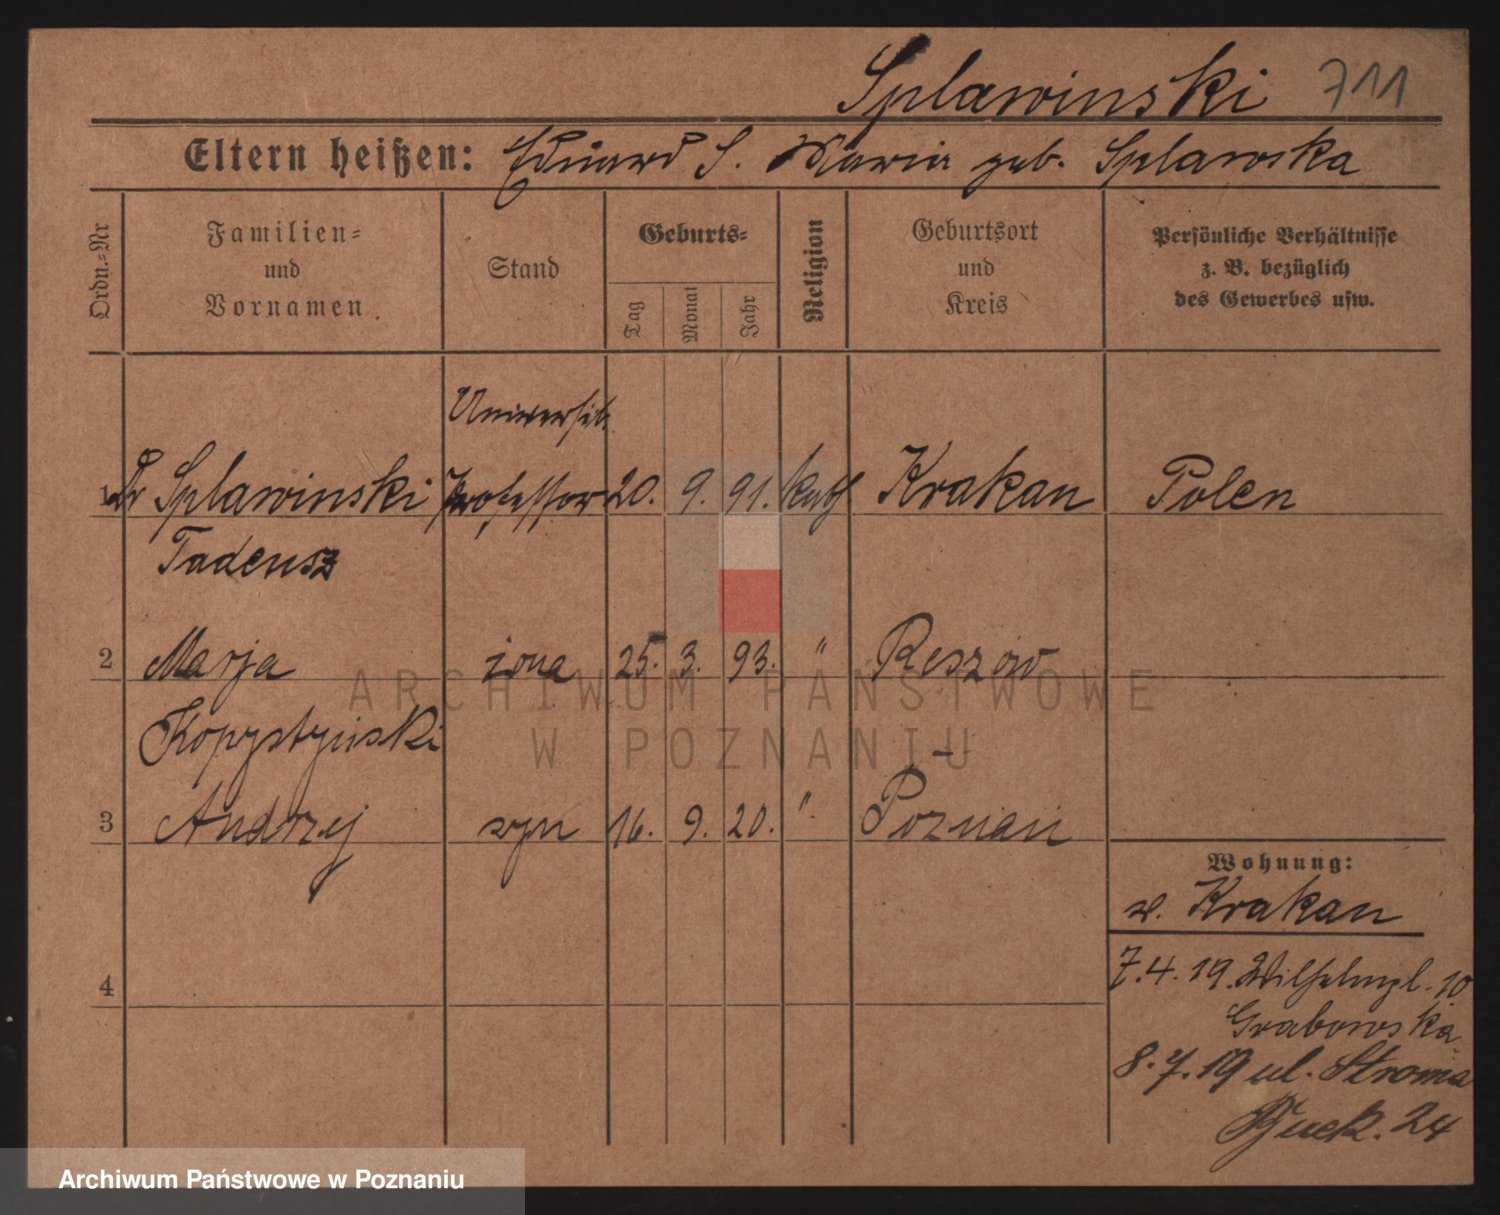 Splawinski 711
Eltern heißen: Eduard S. Maria geb. Splawska
Ordn.=Nr
Familien=
und
Vornamen
Stand
Geburts=
Tag
Monat
Jahr
Religion
Geburtsort
und
Kreis
Persönliche Verhältnisse
z. B. bezüglich
des Gewerbes usw.
Universit.
1 Dr Splawinski Professor 20. 9. 91. kath Krakau Polen
Tadeusz
2 Marja żona 25. 3. 93. " Reszów
Kopystyński
3 Andrzej syn 16. 9. 20. " Poznań
Wohnung:
v. Krakau
4
7.4.19. Wilhelmpl. 10
Grabowska
8.7.19 ul. Stroma
24
ARCHIWUM PAŃSTWOWE
W POZNANIU
Archiwum Państwowe w Poznaniu